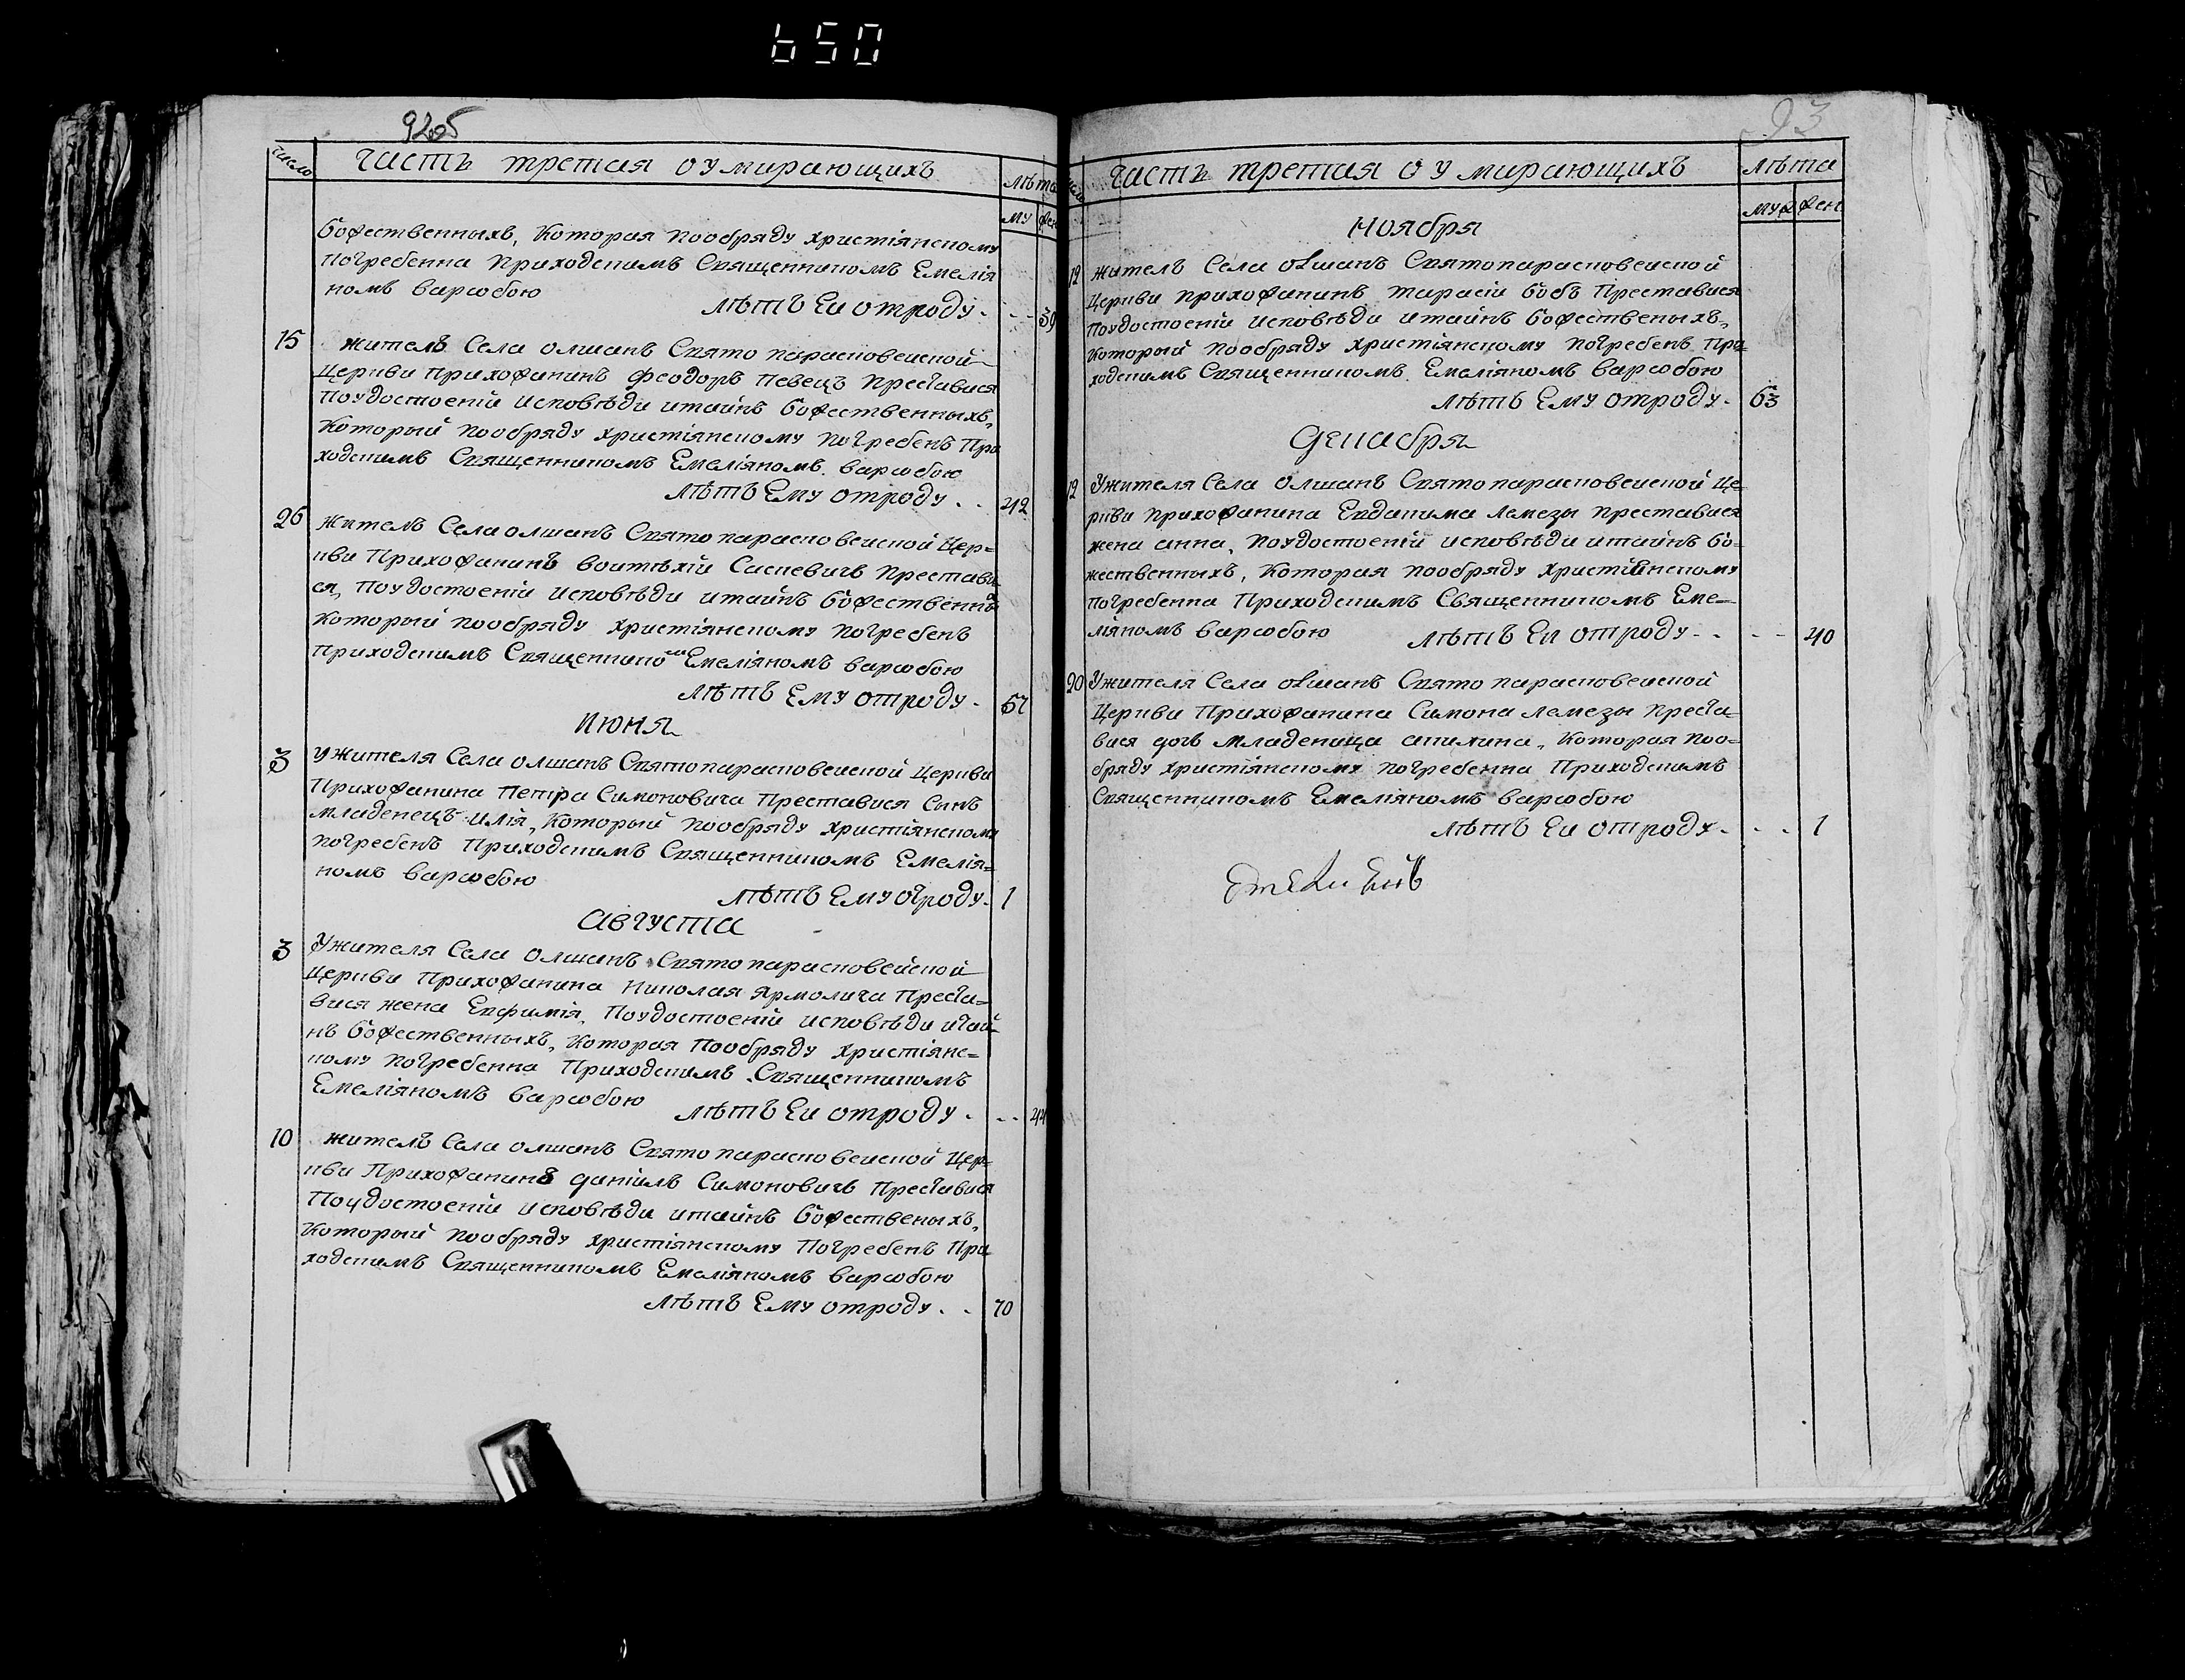 650
92об
число
Часть третая о умирающихъ
лѣта
му
фен
божественныхъ, Которая пообряду христіянскому
погребенна приходскимъ Священникомъ Емелія
номъ варсобою
лѣтъ Еи отроду - - - 39
15 жителъ Села олшанъ Свято парасковеиской
Церкви прихожанинъ феодоръ певецъ преставися
поудостоеніи исповѣди итаинъ божественныхъ,
Которыи пообряду христіянскому погребенъ При
ходскимъ Священникомъ Емеліяномъ варсобою
лѣтъ Ему отроду - - 42
26 жителъ Села олшанъ Свято парасковеиской Цер=
кви Прихожанинъ воитѣхіи Саскевичъ престави
ся, поудостоеніи исповѣди итаинъ божественны
Которыи пообряду христіянскому погребенъ
приходскимъ Священникомъ Емеліяномъ варсобою
лѣтъ Ему отроду - 67
Июня
3 Ужителя Села олшанъ Святопарасковеиской Церкви
Прихожанина Петра Симоновича Преставися Сынъ
младенецъ илія, Которыи пообряду христіянскому
погребенъ Приходскимъ Священникомъ Емелія=
номъ варсобою
лѣтъ Ему отроду - 1
Августа
3 Ужителя Села олшанъ Свято парасковеиской
Церкви Прихожанина Николая Ярмолича Преста=
вися жена Евфимія, Поудостоеніи исповѣди итаи=
нъ божественныхъ, Которая Пообряду христіянс=
кому погребенна Приходскимъ Священникомъ
Емеліяномъ варсобою
лѣтъ Еи отроду - - - 44
10 жителъ Села олшанъ Свято парасковеиской Цер=
кви Прихожанинъ даніилъ Симоновичъ Преставися
Поудостоеніи исповѣди итаинъ божественыхъ,
Которыи пообряду христіянскому Погребенъ При
ходскимъ Священникомъ Емеліяномъ варсобою
лѣтъ Ему отроду - - 70
93
Часть третая о умирающихъ
лѣта
муж
фен
Ноября
12 жителъ Села олшанъ Святопарасковеиской
Церкви прихожанинъ тарасіи бобъ Преставися
поудостоеніи исповѣди итаинъ божественыхъ,
Которыи пообряду христіянскому погребенъ При=
ходскимъ Священникомъ Емеліяномъ варсобою
лѣтъ Ему отроду - 63
Декабря
12 Ужителя Села олшанъ Свято парасковеиской Це=
ркви прихожанина Евдакима Лемезы преставися
жена анна, поудостоеніи исповѣди итаинъ бо=
жественныхъ, Которая пообряду христіянскому
погребенна Приходскимъ Священникомъ Еме=
ліяномъ варсобою лѣтъ Еи отроду - - - - 40
20 Ужителя Села олшанъ Свято парасковеиской
Церкви Прихожанина Симона Лемезы преста=
вися дочь младеница акилина, Которая поо=
бряду христіянскому погребенна Приходскимъ
Священникомъ Емеліяномъ варсобою
лѣтъ Еи отроду - - - 1